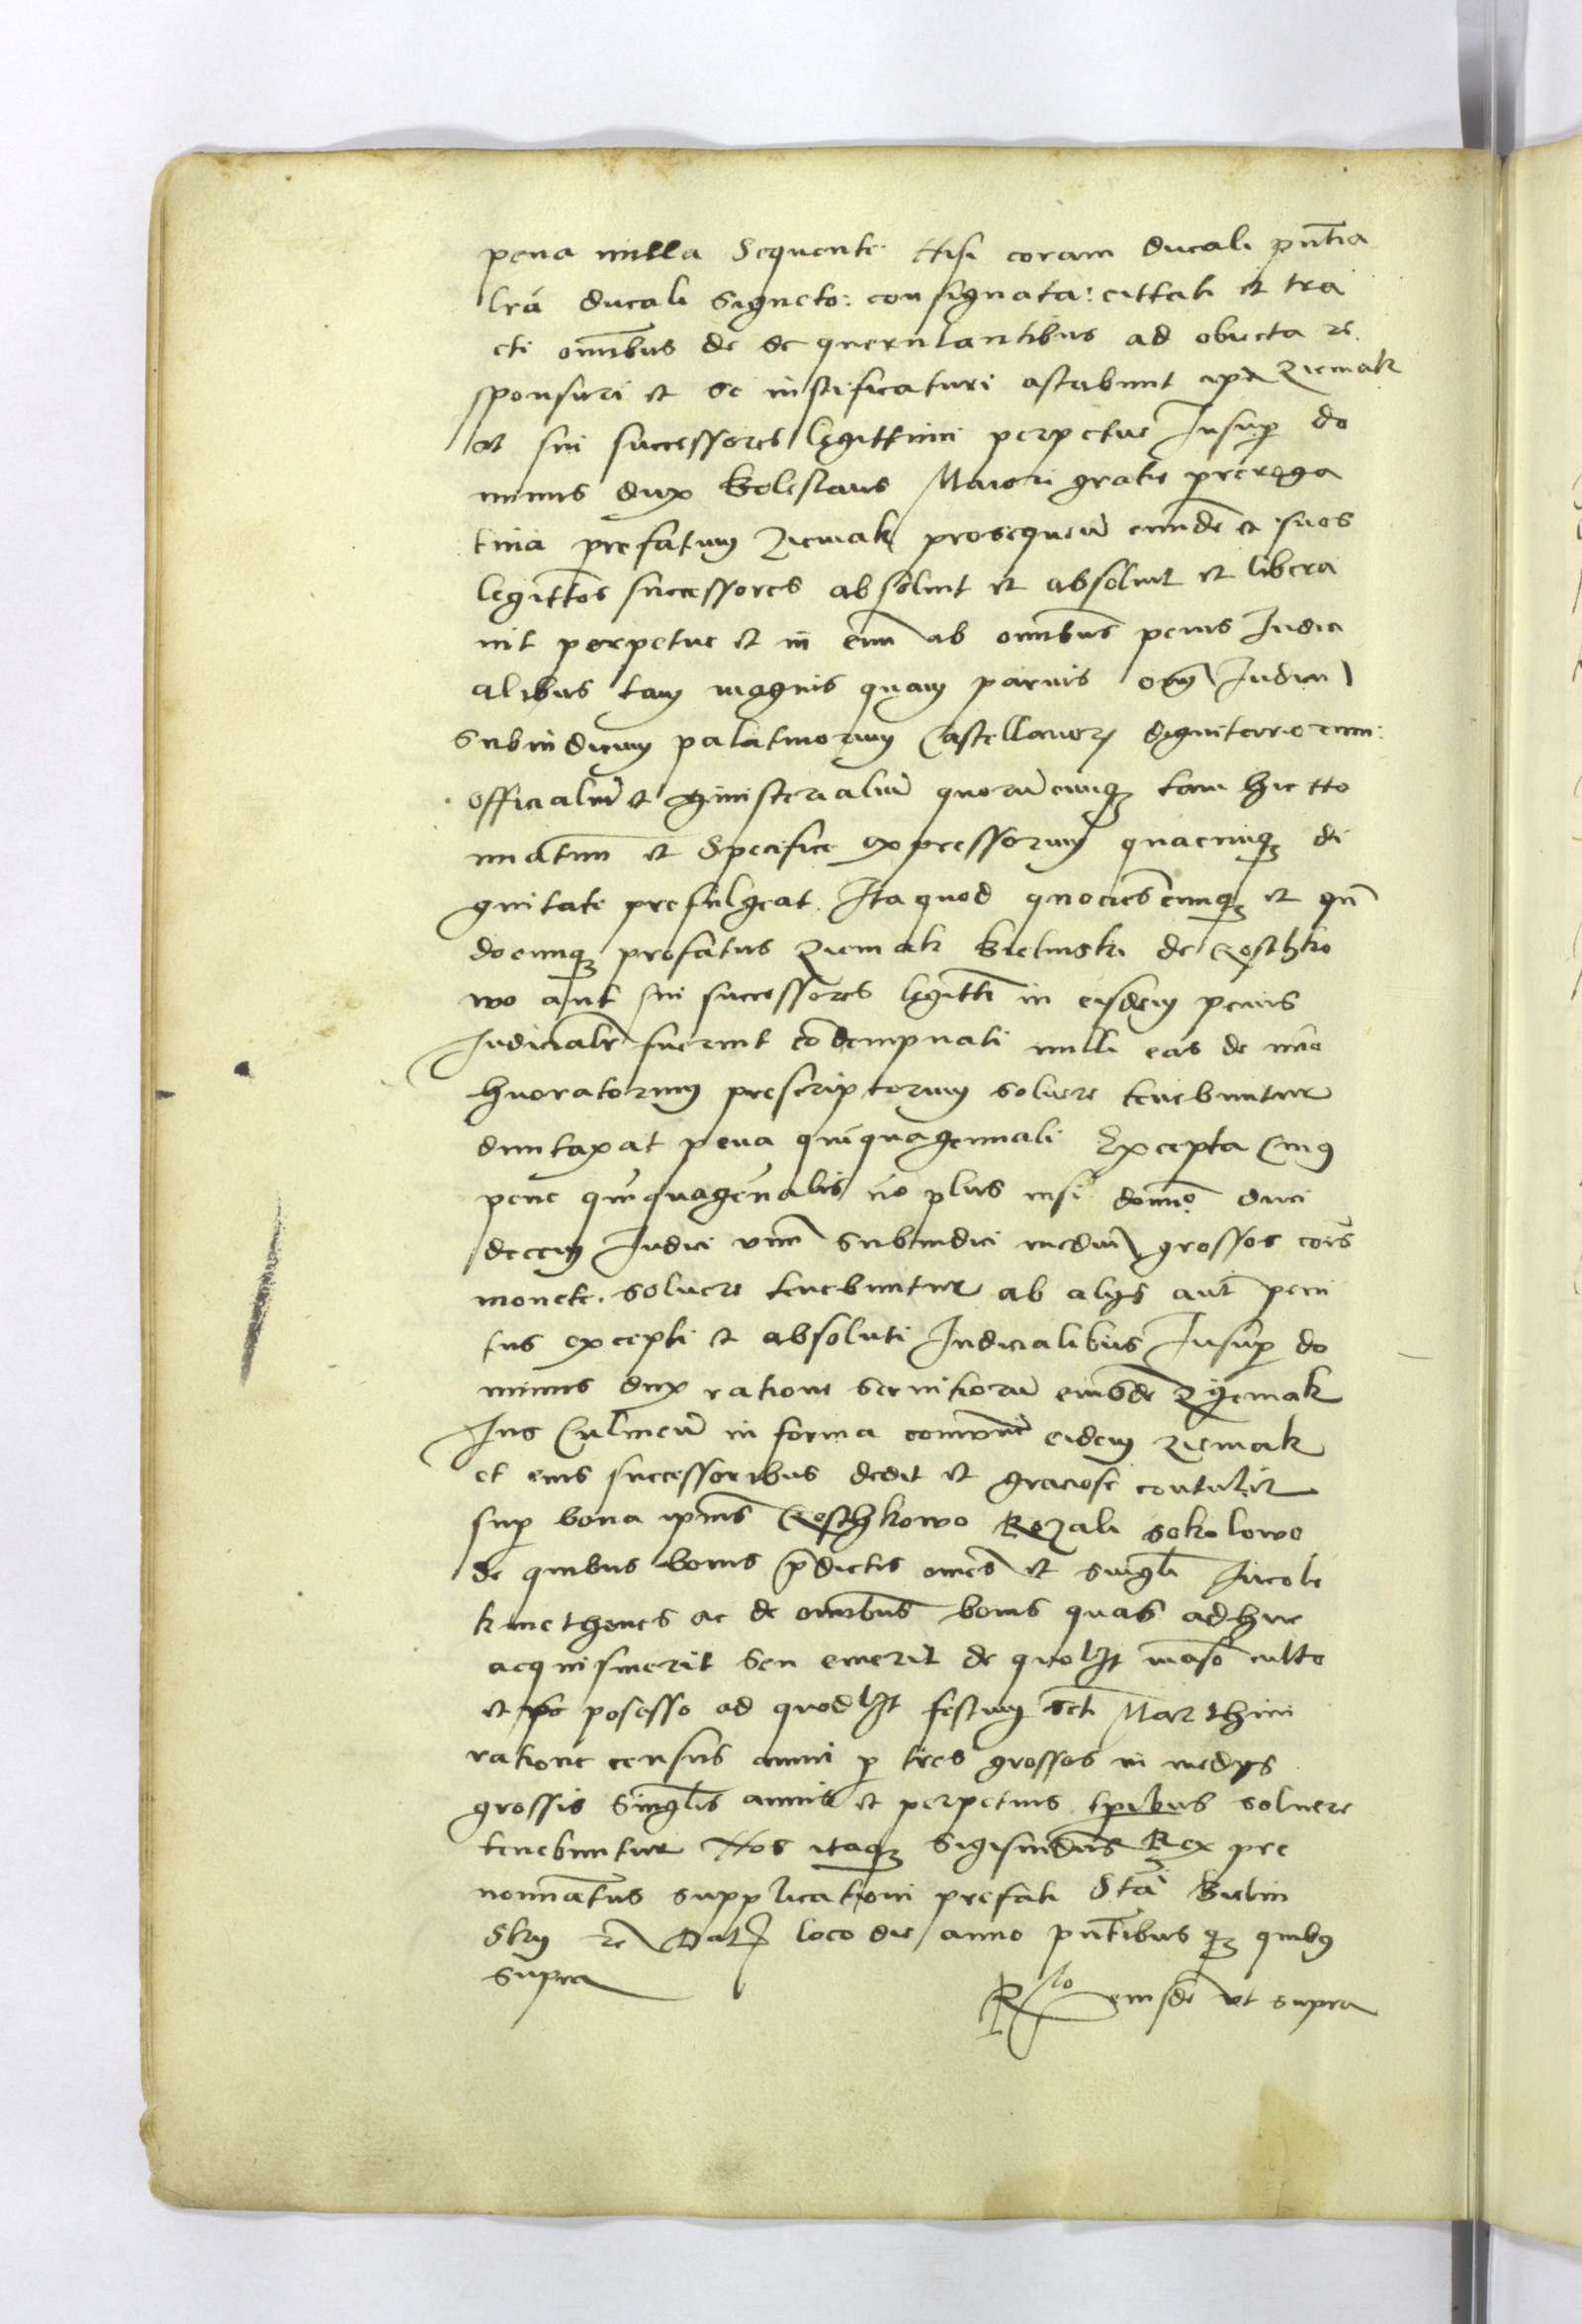 pena nulla Sequente Nisi coram ducali pñtia
lrã ducali signeto: consignata: cittati et tra
cti omībus de se querulantibus ad obiecta re
sponsuri et se iustificaturi astabunt ipse Ziemak
et sui successores legittimi perpetue Insup do
minus dux Boleslaus Maiori gratie preroga
tiua prefatum Ziemak prosequeñ eundē et suos
legittos successores absoluit et absoluit et libera
uit perpetue et in euū ab omībus penis Iudici
alibus tam magnis quam paruis oīm Iudicū
Subiudicum palatinorum Castellanorȝ dignitariorum:
officialiū et ministerialiū quorūcumqȝ tam hic No
minatim et Specifice expressorum quacumqȝ di
gnitate prefulgeat. Ita quod quociescumqȝ et qñ
documqȝ prefatus Ziemak Bielinski de Coschko
wo aut sui successores legitti in eisdem penis
Iudicialr fuerint cōdempnati nulli eas de nūo
honoratorum prescriptorum soluere tenebuntur
duntaxat pena quīquagennali Excepta Cuius
pene quīquagēnalis nō plus nisi domīo duci
decem Iudici vnū subiudici mediū grossos cois
monete. soluere tenebuntur ab alijs aut peni
tus excepti et absoluti Iudicialibus Insup do
minus dux ratione seruitiorū eiusdē Zyemak
Ius Culmeñ in forma comuni eidem Ziemak
et eius successoribus dedit et graciose contulit
sup bona ipīus Coschkowo Rozali sokolowo
de quibus bonis p̄dictis omēs et singli Incole
kmethones ac de omībus bonis quas adhuc
acquisiuerit seu emerit de quolibt māso culto
et posesso ad quodlibt festum scti Marthini
ratione census anni p tres grossos in medijs
grossis singlis annis et perpetuis tpibus soluere
tenebuntur Nos itaqȝ Sigismūdus Rex pre
nominatus supplicationi prefati Sta Bielin
skij rē Datȝ loco die anno pñtibus qȝ quibus
supra
Rlo eiusdē vt supra